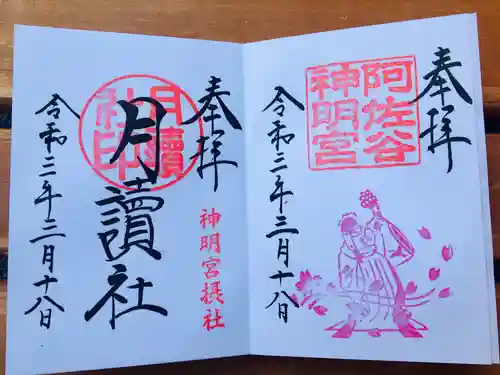 奉拝
阿佐谷
神明宮
令和三年三月十八日
奉拝
月讀
社印
月讀社
神明宮摂社
令和三年三月十八日